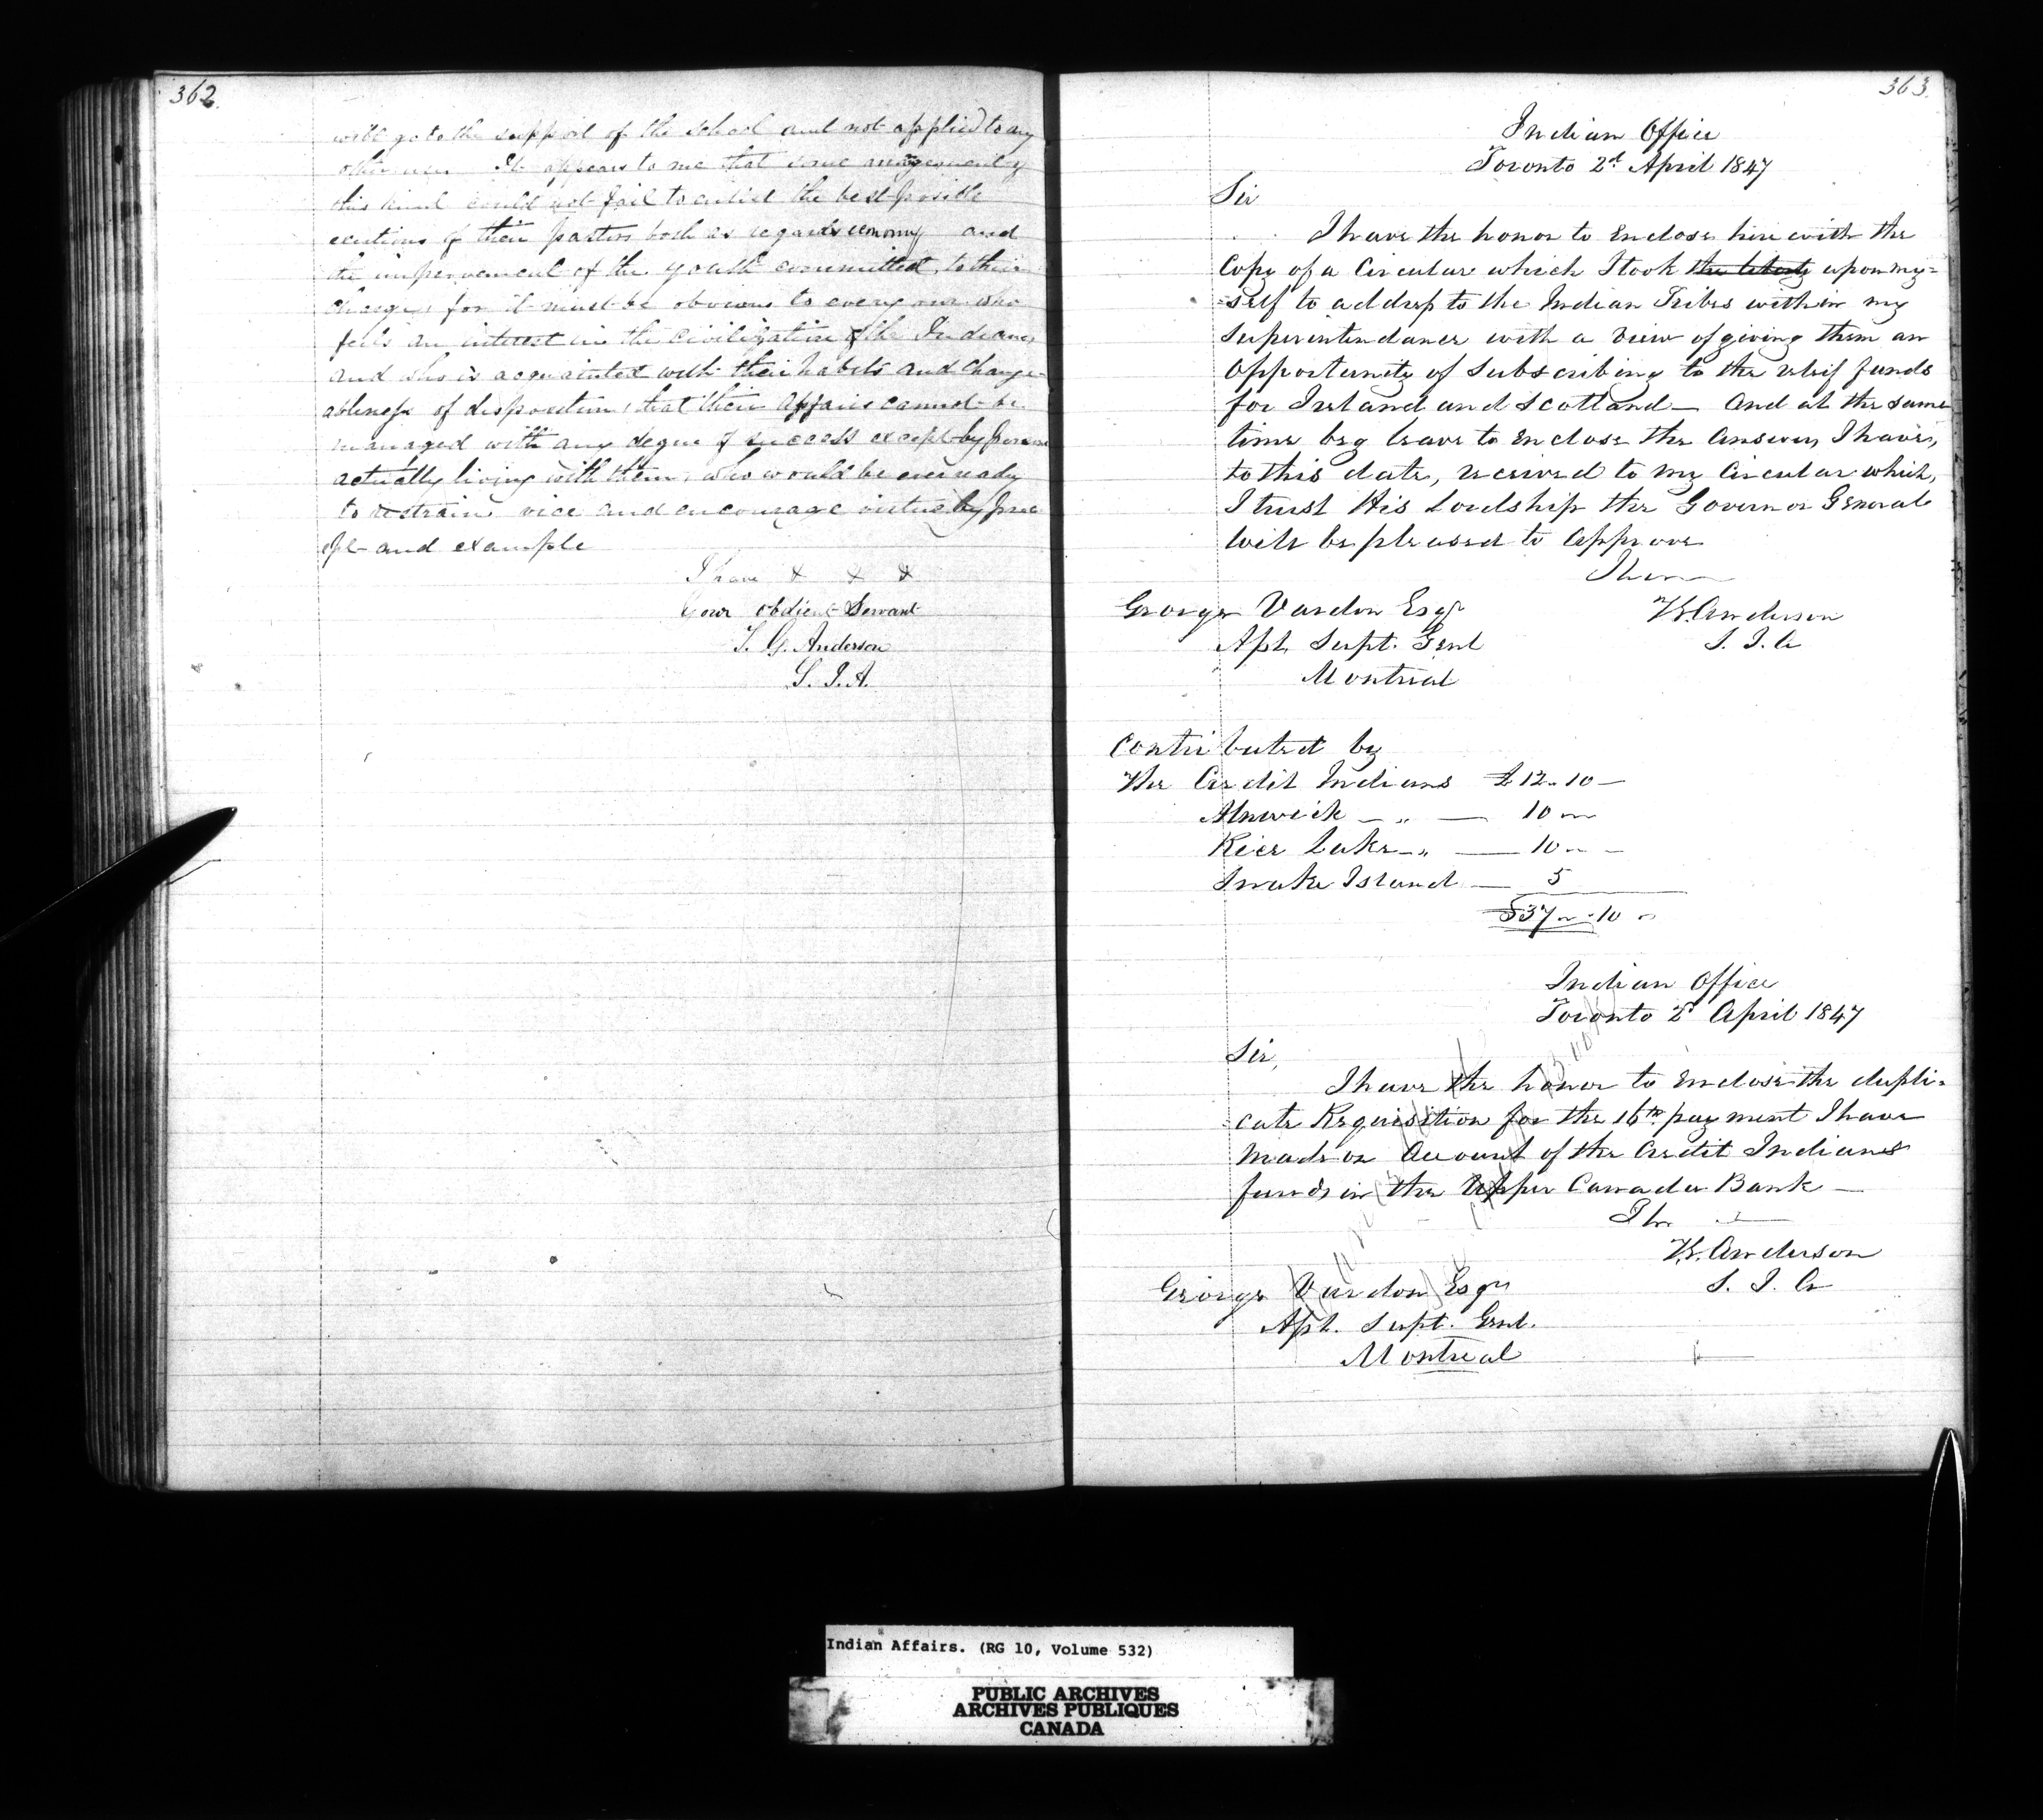 362.
will go to the support of the school and not applied to any
other uses It appears to me that some arrangement of
this kind could not fail to enlist the best possible
exertions of their pastors both as regards economy and
the improvement of the youth committed to their
charge, for it must be obvious to every one who
feels an interest in the civilization of the Indians
and who is acquainted with their habits and change-
ableness of disposition, that their affairs cannot be
managed with any degree of success except by persons
actually living with them, who would be ever ready
to restrain vice and encourage virtue by prec
ept and example
I have & & &
Your obedient Servant
T. G. Anderson
S. I. A.
363.
Indian Office
Toronto 2d April 1847
Sir
I have the honor to enclose herewith the
Copy of a Circular which I took the liberty upon my=
=self to address to the Indian Tribes within my
Superintendance with a view of giving them an
opportunity of Subscribing to the relief funds
for Ireland and Scotland — And at the same
time beg leave to enclose the Answers, I have,
to this date, received to my Circular which,
I trust His Lordship the Governor General
will be pleased to approve
I have
George Vardon Esqr
T.G. Anderson
Asst. Supt. Genl
S. I. A
Montreal
Contributed by
The Credit Indians £12.10 —
Alnwick — „ — 10
Rice Lake — „ — 10
Snake Island — 5
£37 . 10
Indian Office
Toronto 2d April 1847
Sir,
I have the honor to enclose the dupli=
cate Requisition for the 16th payment I have
made on Account of the Credit Indians
funds in the Upper Canada Bank —
I h
T.G. Anderson
George Vardon Esqr
S. I. A
Asst. Supt. Genl.
Montreal
Indian Affairs. (RG 10, Volume 532)
PUBLIC ARCHIVES
ARCHIVES PUBLIQUES
CANADA